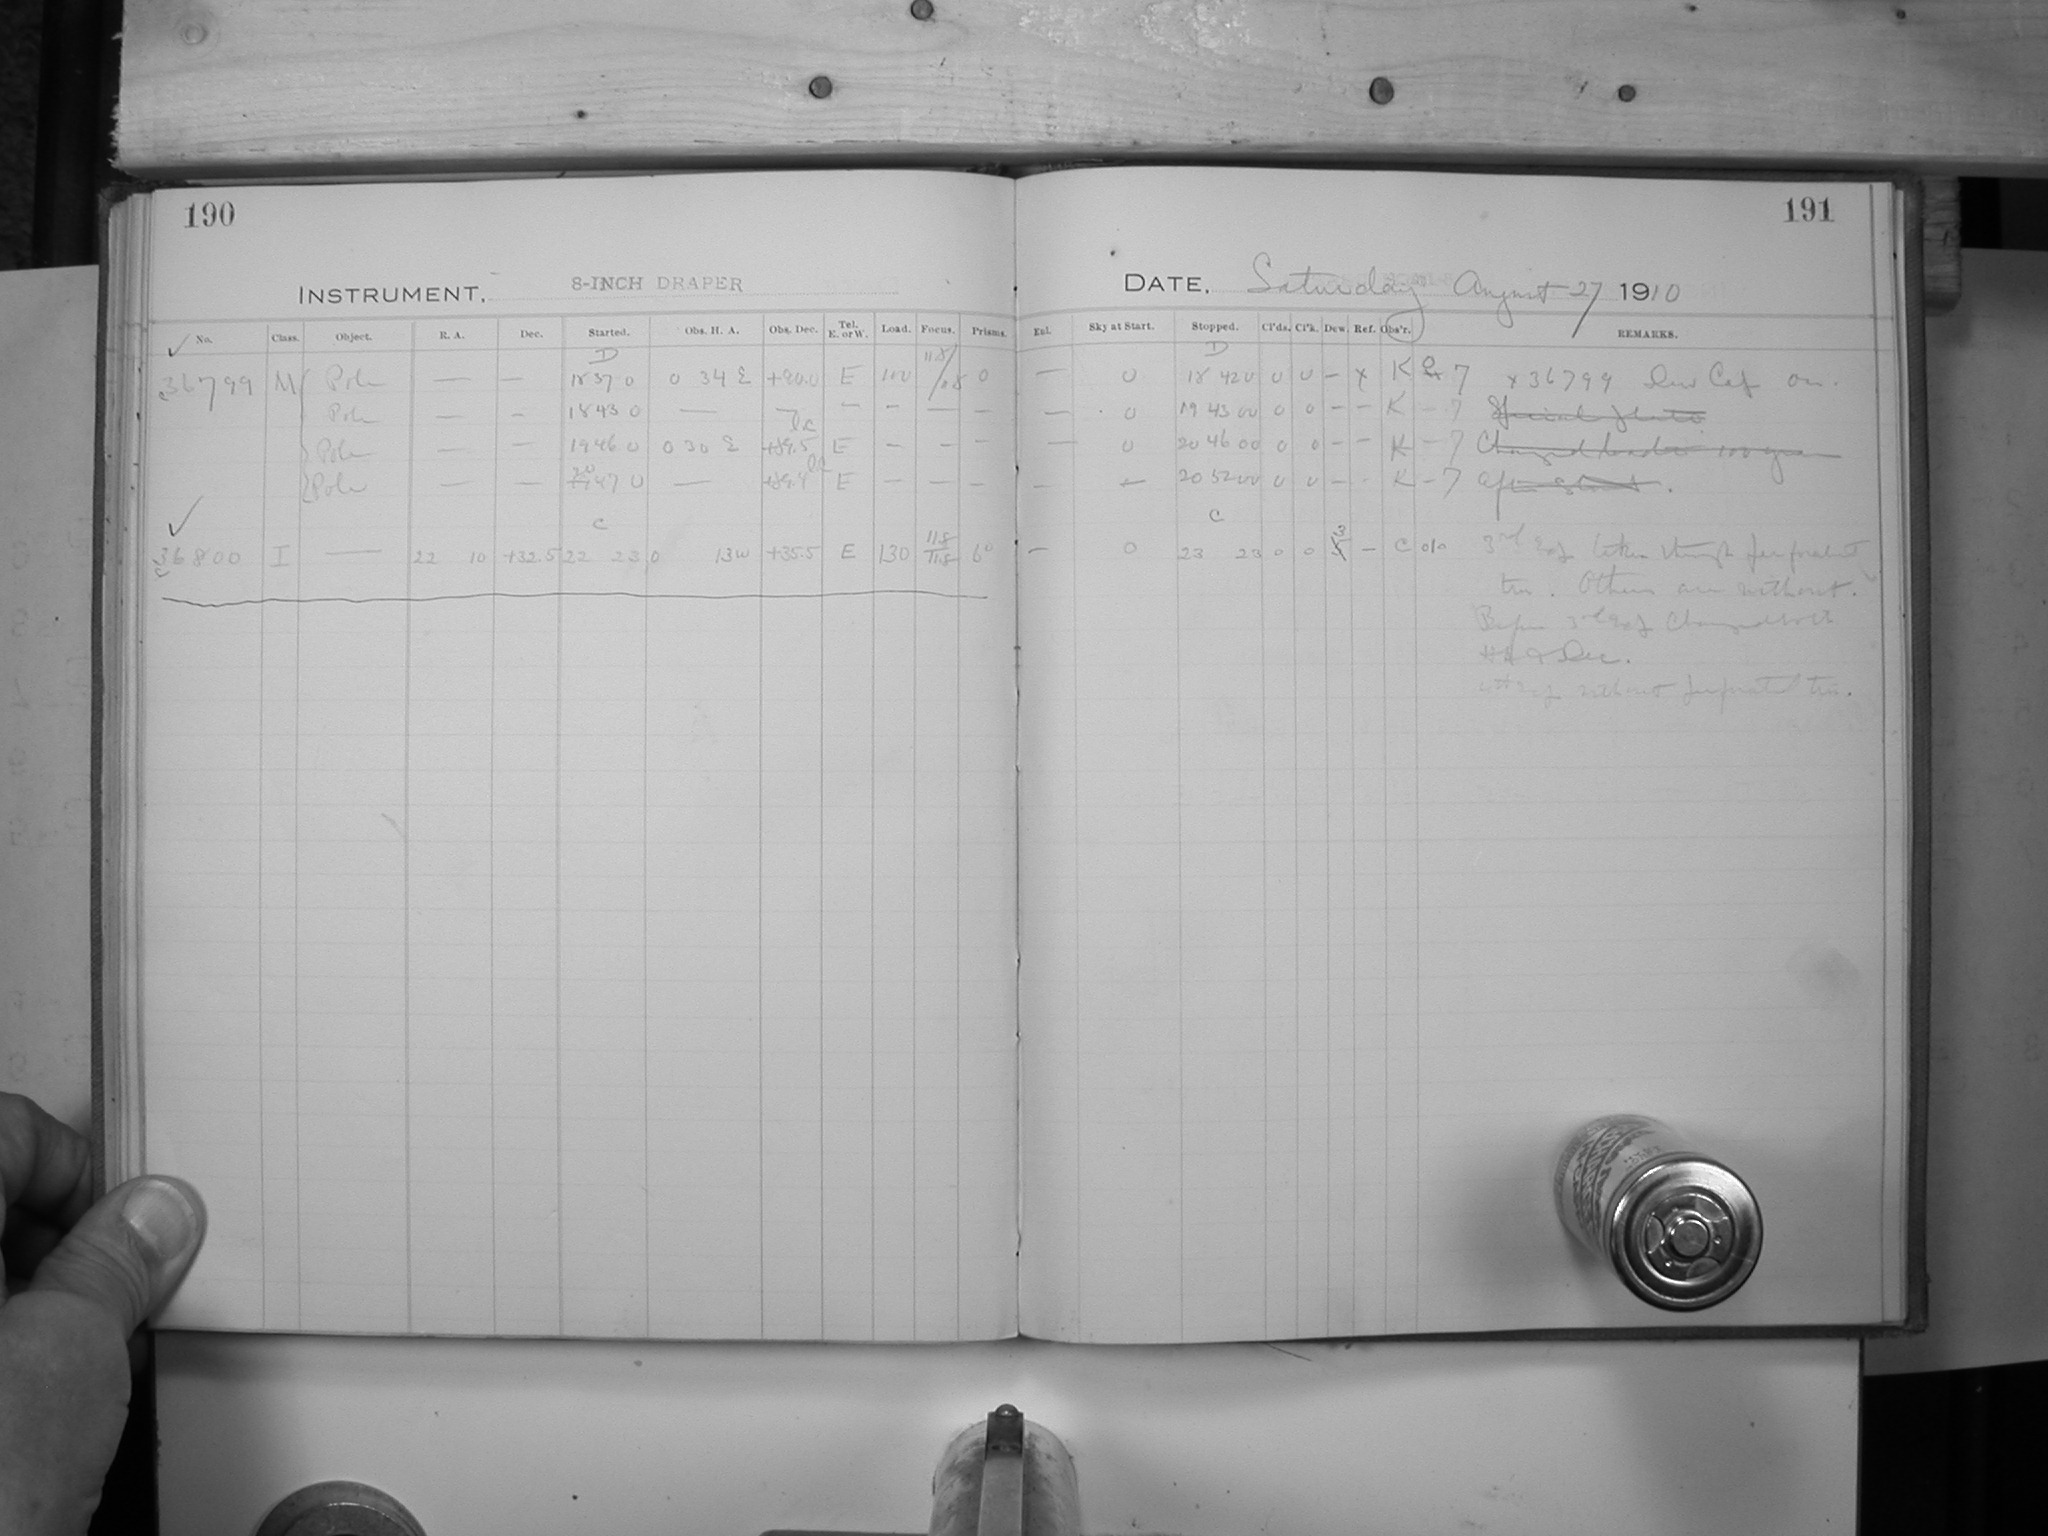 190
191
INSTRUMENT, 8-INCH DRAPER
DATE, Saturday August 27 1910
No. Class. Object. R. A. Dec. Started. Obs. H. A. Obs. Dec. Tel. E. or W. Load. Focus. Prisms.
Ent. Sky at Start. Stopped. Cl'ds. Cl'k. Dew. Ref. Obs'r. REMARKS.
D
D
36799 M Pole — — 18 37 0 0 34 E +90.0 E 100 11.8/11.8 0
— 0 18 42 0 0 0 – x K 7 x 36799 Dew Cap on.
Pole — – 18 43 0 — — – – — –
— 0 19 43 00 0 0 – – K – 7
Pole — — 19 46 0 0 30 E +89.5 E – — –
— 0 20 46 00 0 0 – – K – 7 Changed
Pole — — 20 47 0 — E – — –
– 20 52 00 0 0 – - K – 7 After
C
C
36800 I — 22 10 +32.5 22 23 0 13 W +35.5 E 130 11.8/11.8 6°
– 0 23 23 0 0 3 – C 3rd Exp taken through perforated
tin. Others are without.
Before 3rd Exp Changed both
HA & Dec.
4th Exp without perforated tin.